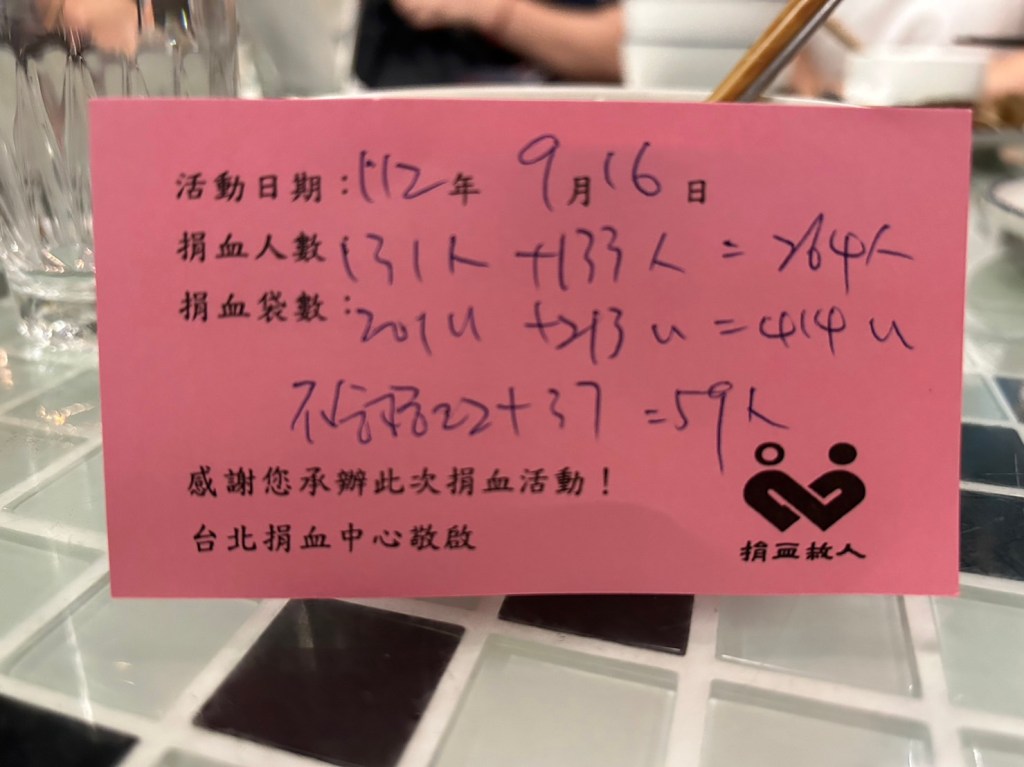 活動日期：112年 9月16日
捐血人數：131人 +133人 = 264人
捐血袋數：201u +213u = 414u
不合格22+37 =59人
感謝您承辦此次捐血活動！
台北捐血中心敬啟
捐血救人